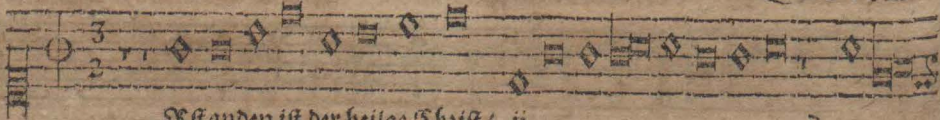 3
2
Rstanden ist der heilge Christ / ij